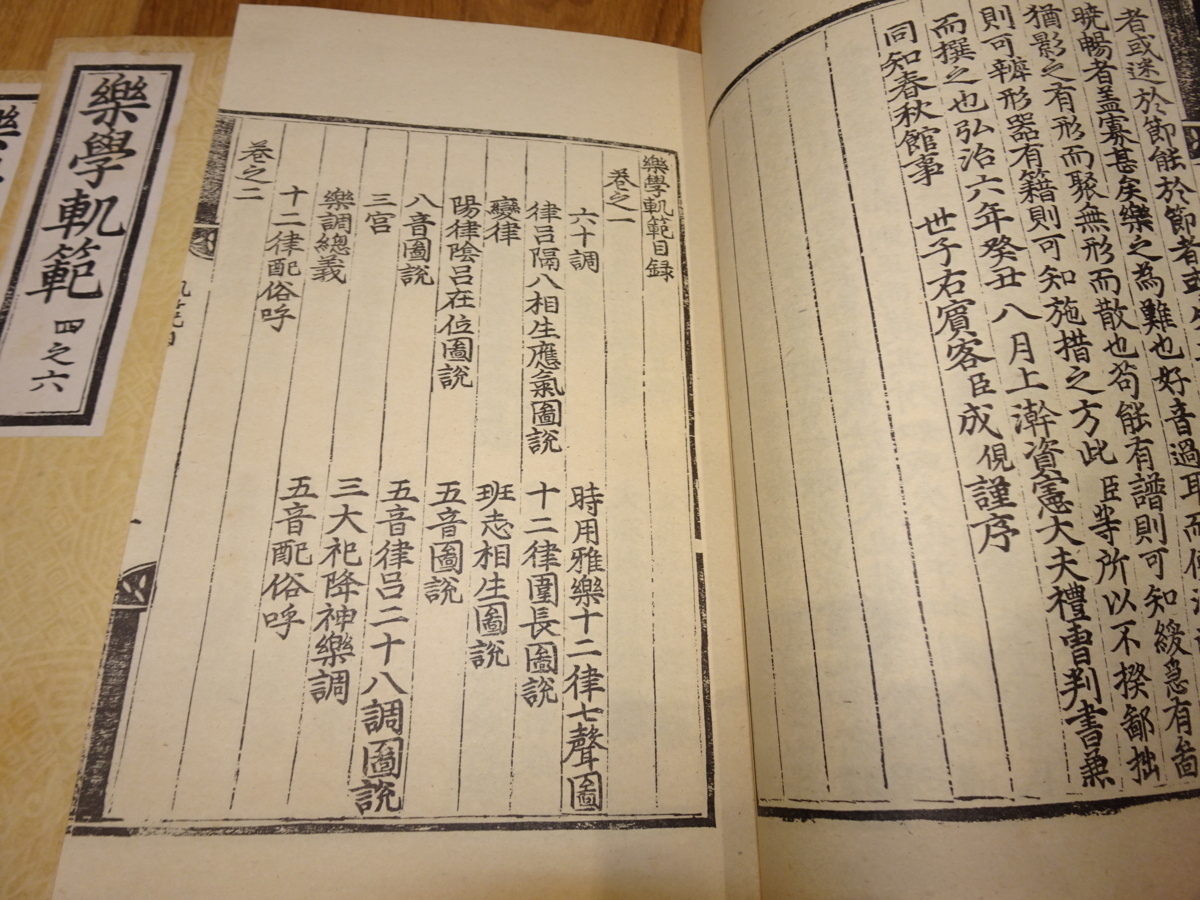 者或迷於節能於節者或
曉暢者蓋寡甚矣樂之為難也好音過耳而便
猶影之有形而聚無形而散也苟能有譜則可知緩急有啚
則可辨形器有籍則可知施措之方此臣等所以不揆鄙拙
而撰之也弘治六年癸丑八月上澣資憲大夫禮曹判書兼
同知春秋館事 世子右賓客臣成俔謹序
樂學軌範目録
卷之一
六十調 時用雅樂十二律七聲圖
律呂隔八相生應氣圖說 十二律圍長圖說
變律 班志相生圖說
陽律陰呂在位圖說 五音圖說
八音圖說 五音律呂二十八調圖說
三宮 三大祀降神樂調
樂調總義 五音配俗呼
十二律配俗呼
卷之二
樂學軌範 四之六